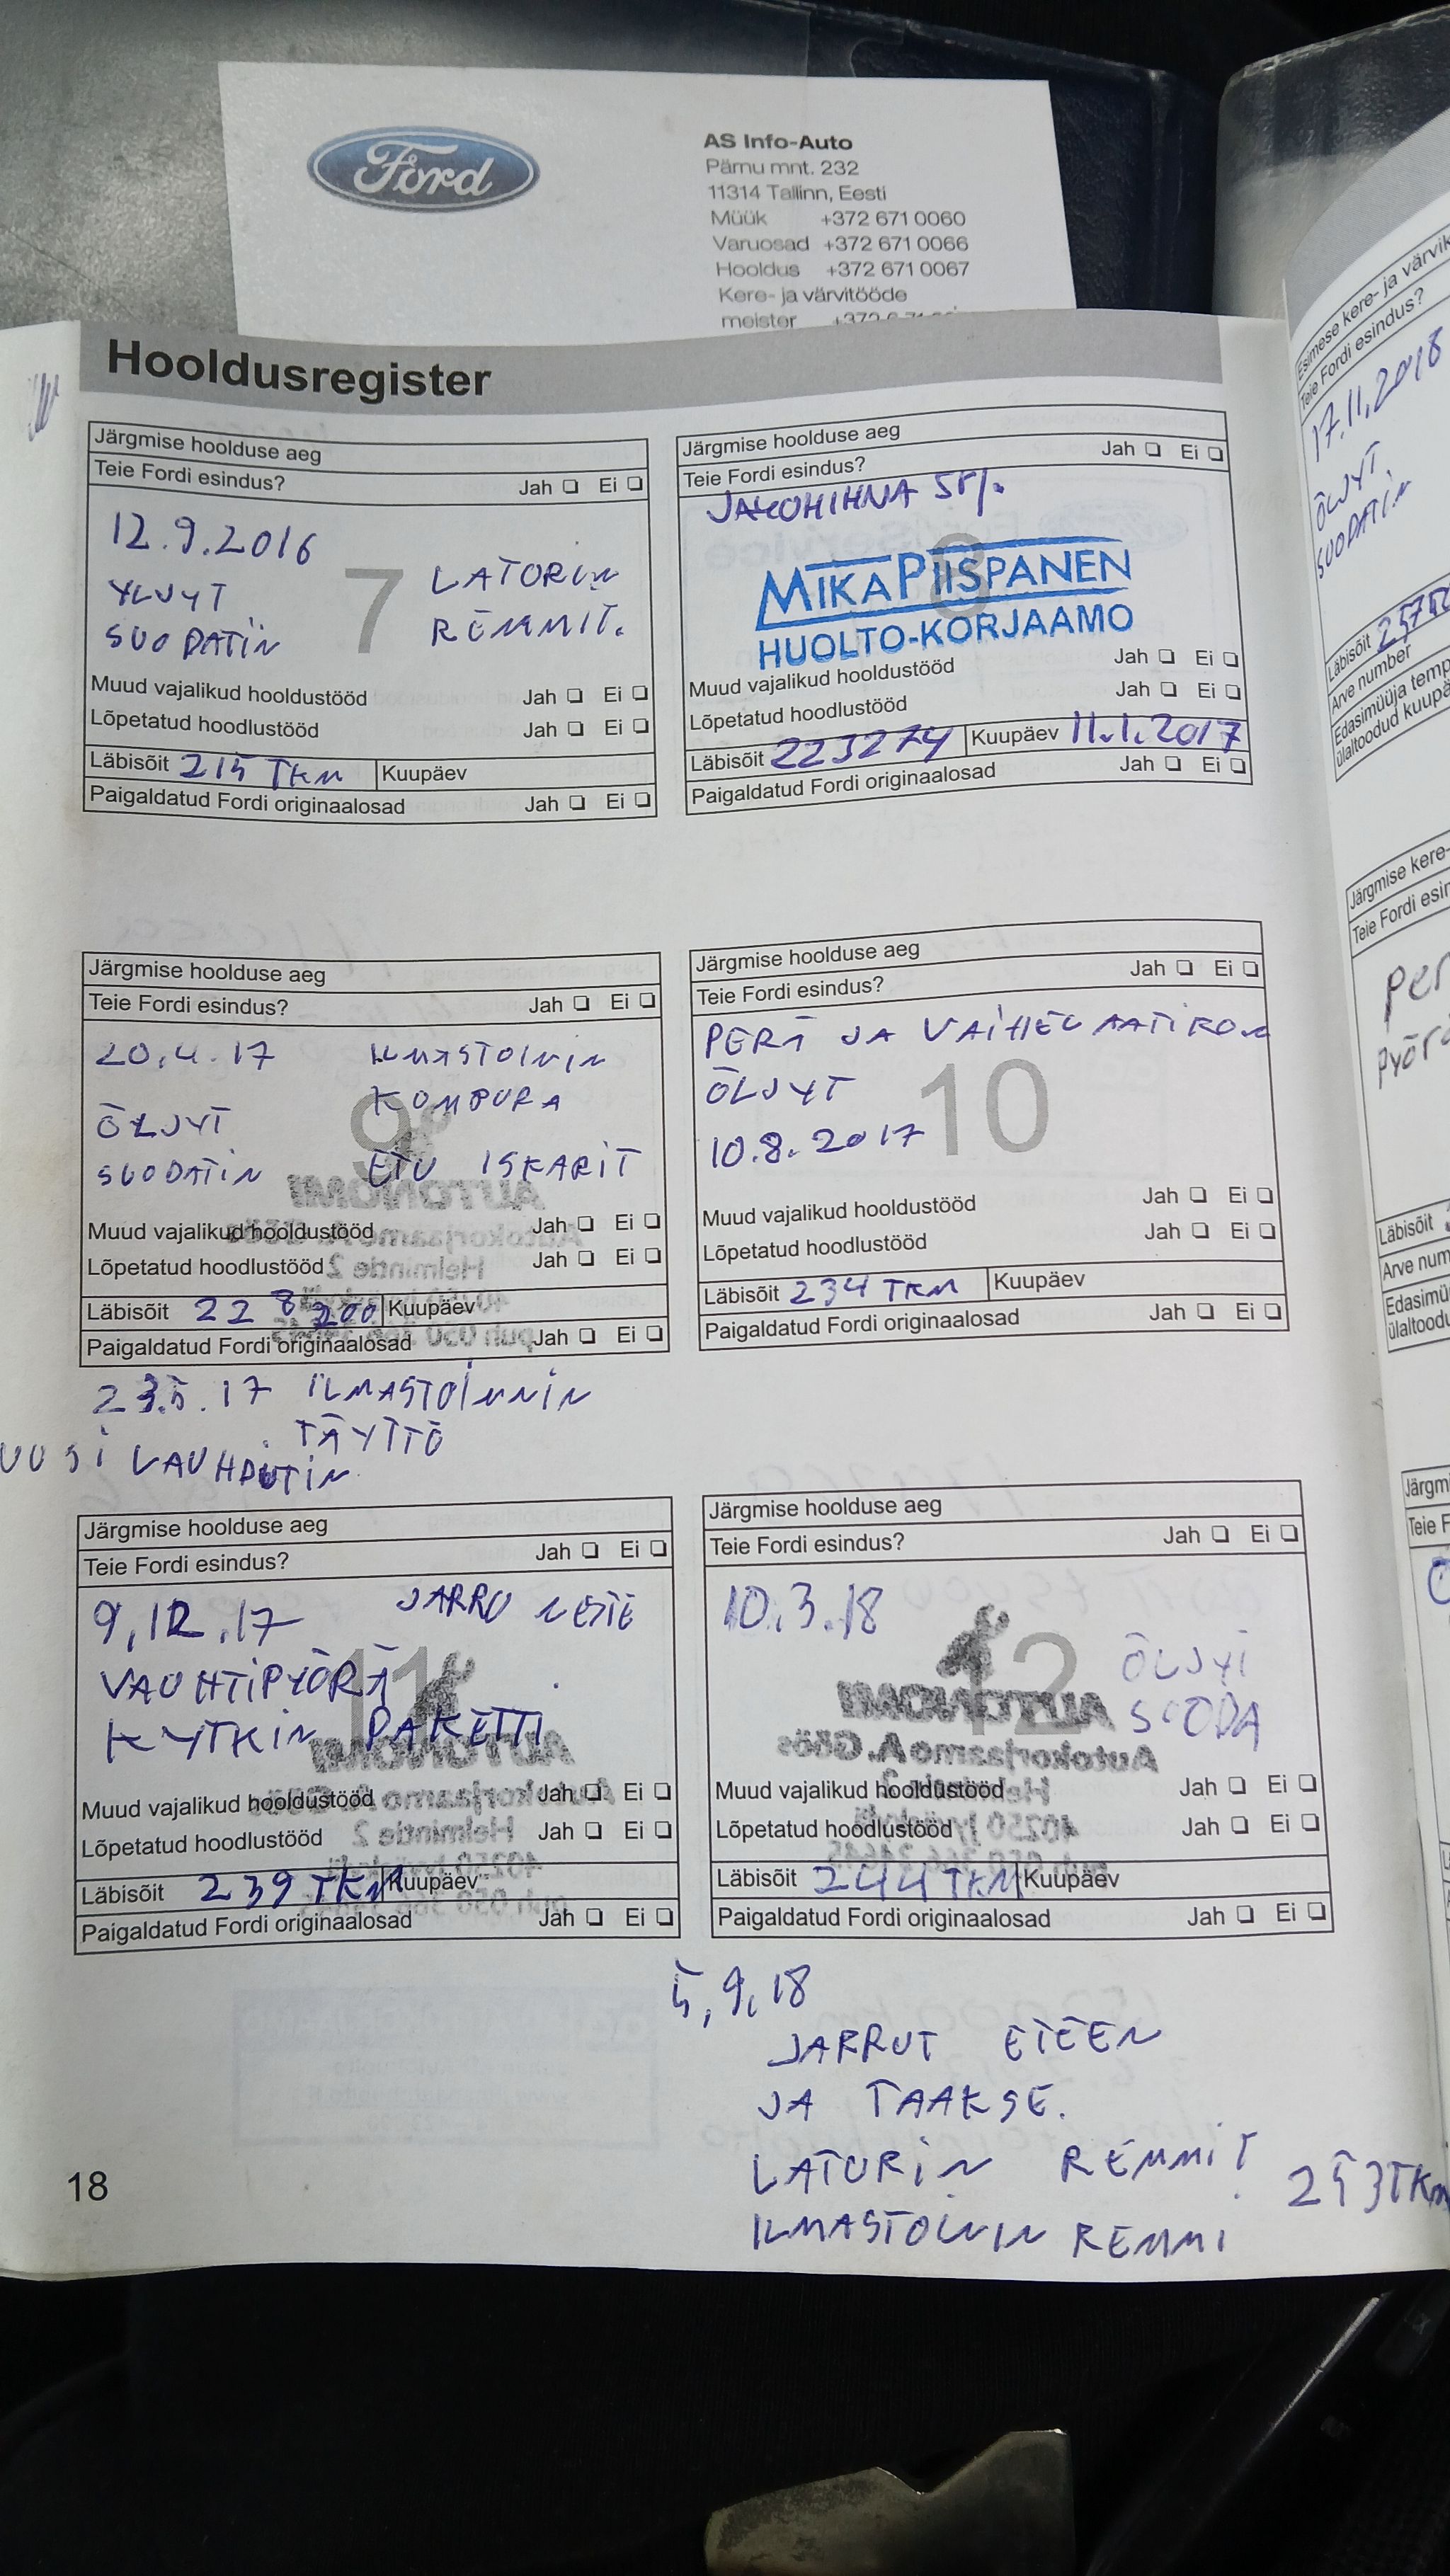 Ford
AS Info-Auto
Pärnu mnt. 232
11314 Tallinn, Eesti
Müük +372 671 0060
Varuosad +372 671 0066
Hooldus +372 671 0067
Kere- ja värvitööde
meister
Hooldusregister
Järgmise hoolduse aeg
Teie Fordi esindus? Jah Ei
12.9.2016
YLJYT
SUODATIN
7
LATORIN
REMMIT.
Muud vajalikud hooldustööd Jah Ei
Lõpetatud hoodlustööd Jah Ei
Läbisõit 215 TKM Kuupäev
Paigaldatud Fordi originaalosad Jah Ei
Järgmise hoolduse aeg
Teie Fordi esindus? Jah Ei
JAKOHIHNA
8
MIKA PIISPANEN
HUOLTO-KORJAAMO
Muud vajalikud hooldustööd Jah Ei
Lõpetatud hoodlustööd Jah Ei
Läbisõit 223274 Kuupäev 11.1.2017
Paigaldatud Fordi originaalosad Jah Ei
Järgmise hoolduse aeg
Teie Fordi esindus? Jah Ei
20.4.17
ÖLJYT
SUODATIN
9
KOMPURA
ETU ISKARIT
Muud vajalikud hooldustööd Jah Ei
Lõpetatud hoodlustööd Jah Ei
Läbisõit 228200 Kuupäev
Paigaldatud Fordi originaalosad Jah Ei
23.5.17 ILMASTOINNIN
TÄYTTÖ
UUSI LAUHDUTIN
Järgmise hoolduse aeg
Teie Fordi esindus? Jah Ei
PERÄ JA VAIHELAATIKON
ÖLJYT
10.8.2017
10
Muud vajalikud hooldustööd Jah Ei
Lõpetatud hoodlustööd Jah Ei
Läbisõit 234 TKM Kuupäev
Paigaldatud Fordi originaalosad Jah Ei
Järgmise hoolduse aeg
Teie Fordi esindus? Jah Ei
9.12.17 JARRU NESTE
VAUHTIPYÖRÄ
KYTKIN PAKETTI
11
Muud vajalikud hooldustööd Jah Ei
Lõpetatud hoodlustööd Jah Ei
Läbisõit 239 TKM Kuupäev
Paigaldatud Fordi originaalosad Jah Ei
Järgmise hoolduse aeg
Teie Fordi esindus? Jah Ei
10.3.18
12
ÖLJYT
Muud vajalikud hooldustööd Jah Ei
Lõpetatud hoodlustööd Jah Ei
Läbisõit 244 TKM Kuupäev
Paigaldatud Fordi originaalosad Jah Ei
5.9.18
JARRUT ETEEN
JA TAAKSE.
LATURIN REMMIT
ILMASTOINNIN REMMI
253TKM
18
Esimese kere- ja
Teie Fordi esindus?
17.11.2018
ÖLJYT
SUODATIN
Läbisõit
Arve number
Edasimüüja
ülaltoodud
Järgmise kere-
Teie Fordi
Läbisõit
Arve